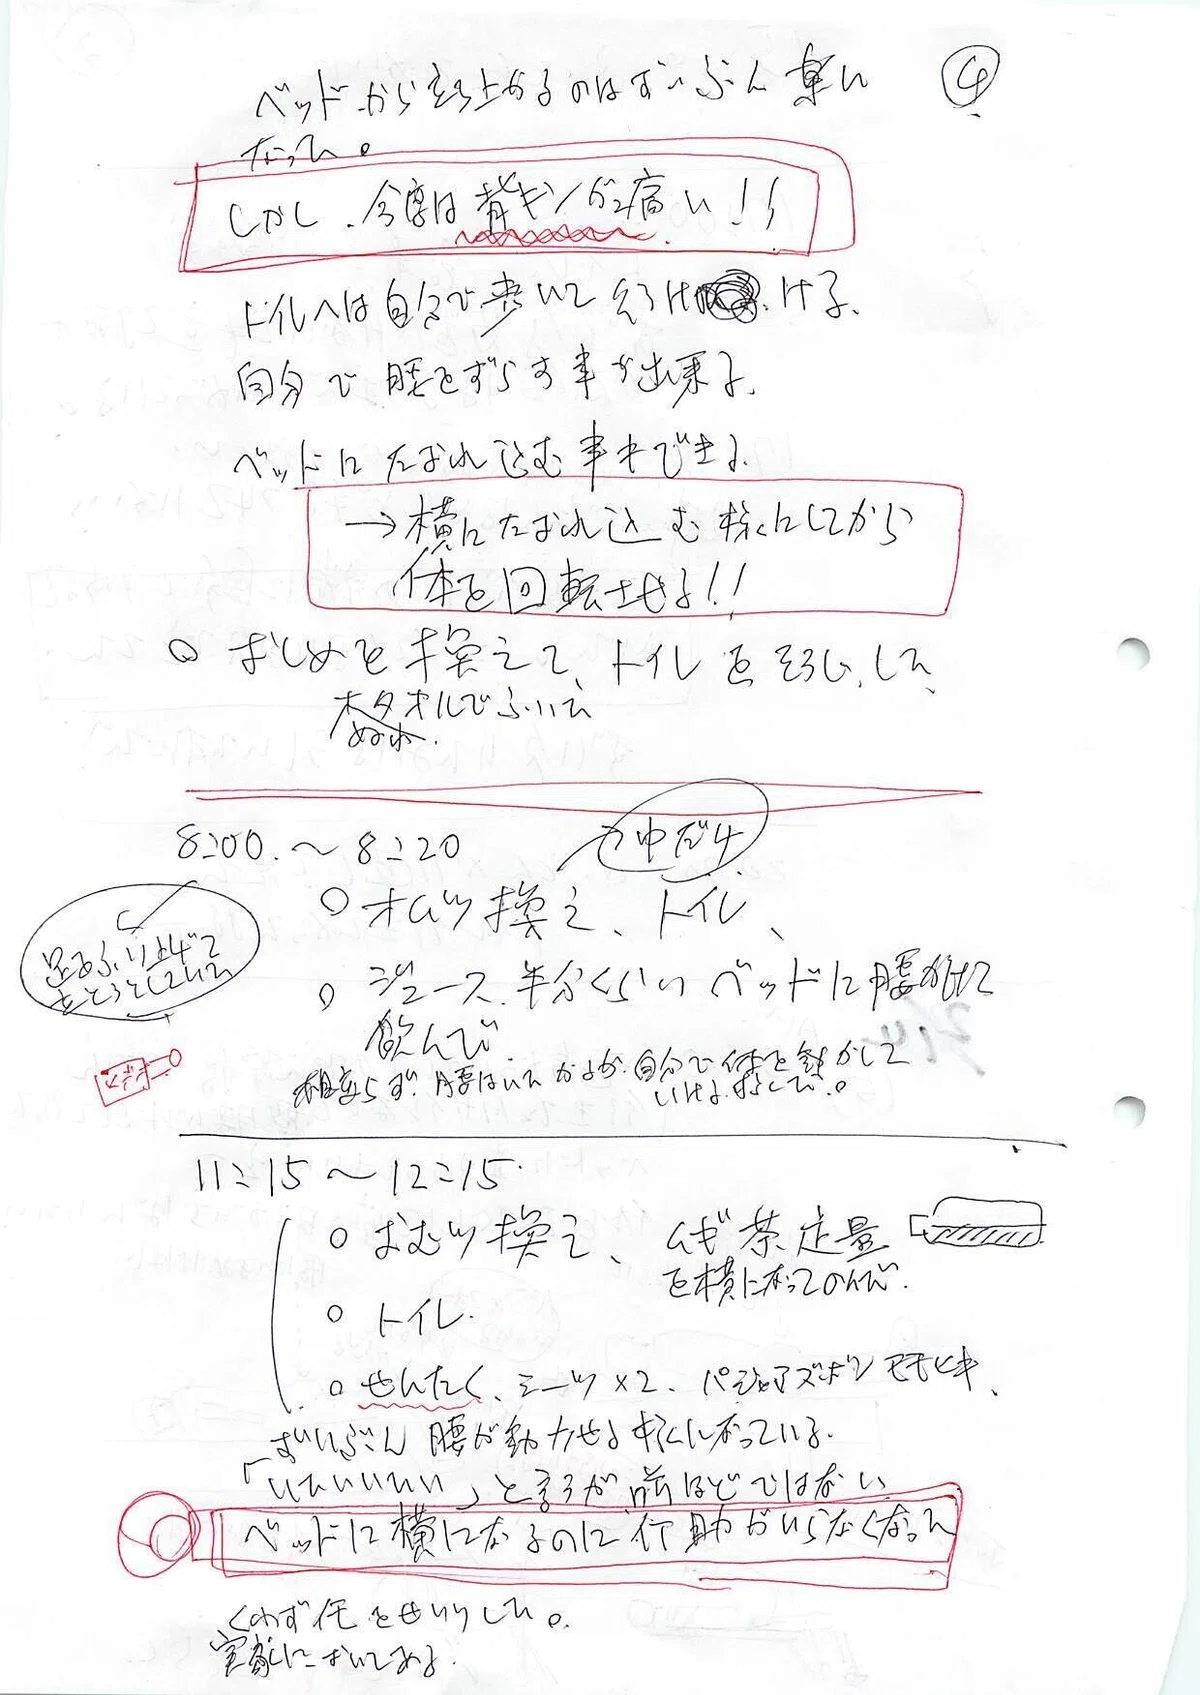 ④
ベッドから立ち上がるのはずいぶん楽に
なった。
しかし、今度は背キンが痛い!!
トイレへは自分で歩いて行ける、
自分で腰をずらす事が出来る、
ベッドにたおれ込む事もできる
→横にたおれ込む様にしてから
体を回転させる!!
○ おしめを換えて、トイレをそうじ、した、
タオルでふいた
ぬれ
8:00. ～ 8:20
○ オムツ換え、トイレ、
足をふり上げて
○ ジュース、半分くらいベッドに腰かけて
飲んだ
相変らず、腰はいたがるが、自分で体を動かして
11:15 ～ 12:15
○ おむつ換え、ムギ茶定量
を横になってのんだ.
○ トイレ.
○ せんたく、シーツ×2、パジャマズボン モモヒキ、
ずいぶん腰が動かせる様になっている.
「いたいいたい」と言うが前ほどではない
ベッドに横になるのに介助がいらなくなった
をせいりした。
実家においてある.